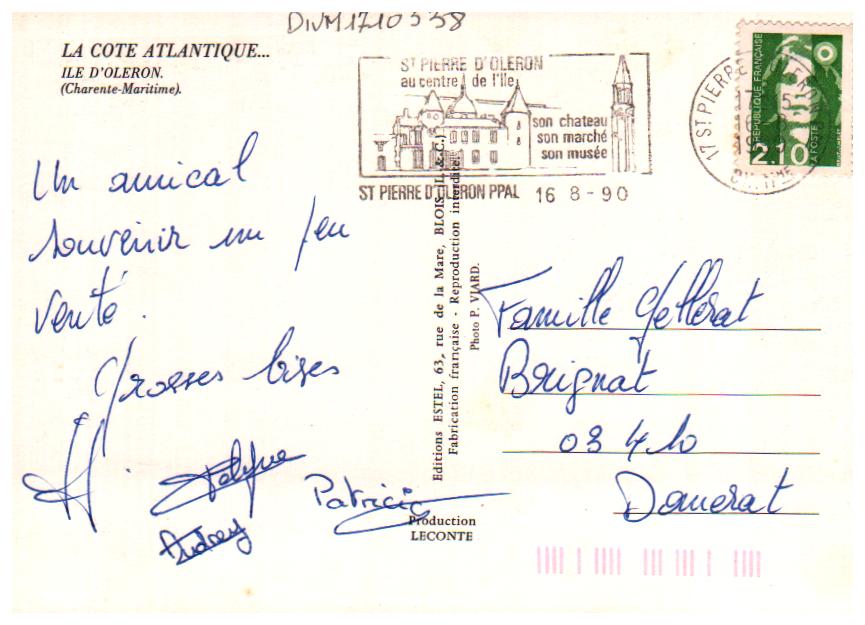 DIVM1710338
LA COTE ATLANTIQUE...
ILE D'OLERON.
(Charente-Maritime).
ST PIERRE D'OLERON
au centre de l'île
son chateau
son marché
son musée
ST PIERRE D'OLERON PPAL 16 8-90
17 ST PIERRE
REPUBLIQUE FRANÇAISE
2.10
LA POSTE
Un amical
souvenir un peu
venté.
Grosses bises
Patricia
Audrey
Editions ESTEL, 63, rue de la Mare, BLOIS (L. & C.)
Fabrication française - Reproduction interdite.
Photo P. VIARD.
Production
LECONTE
Famille
Brignat
03410
Domerat